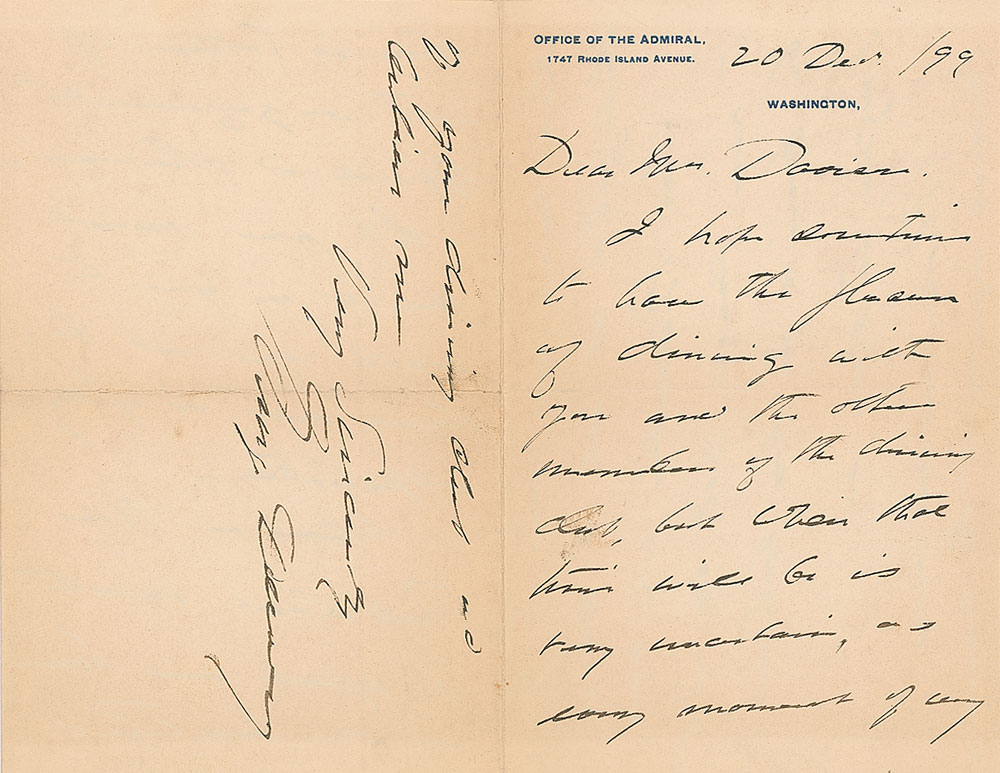 OFFICE OF THE ADMIRAL,
1747 RHODE ISLAND AVENUE.
20 Dec. /99
WASHINGTON,
Dear Mr.
I hope sometime
to have the pleasure
of dinning with
you and the other
members of the dinning
club, but when that
time will be is
very uncertain, as
every moment of my
of your dining club
me
Very Sincerely
George Dewey